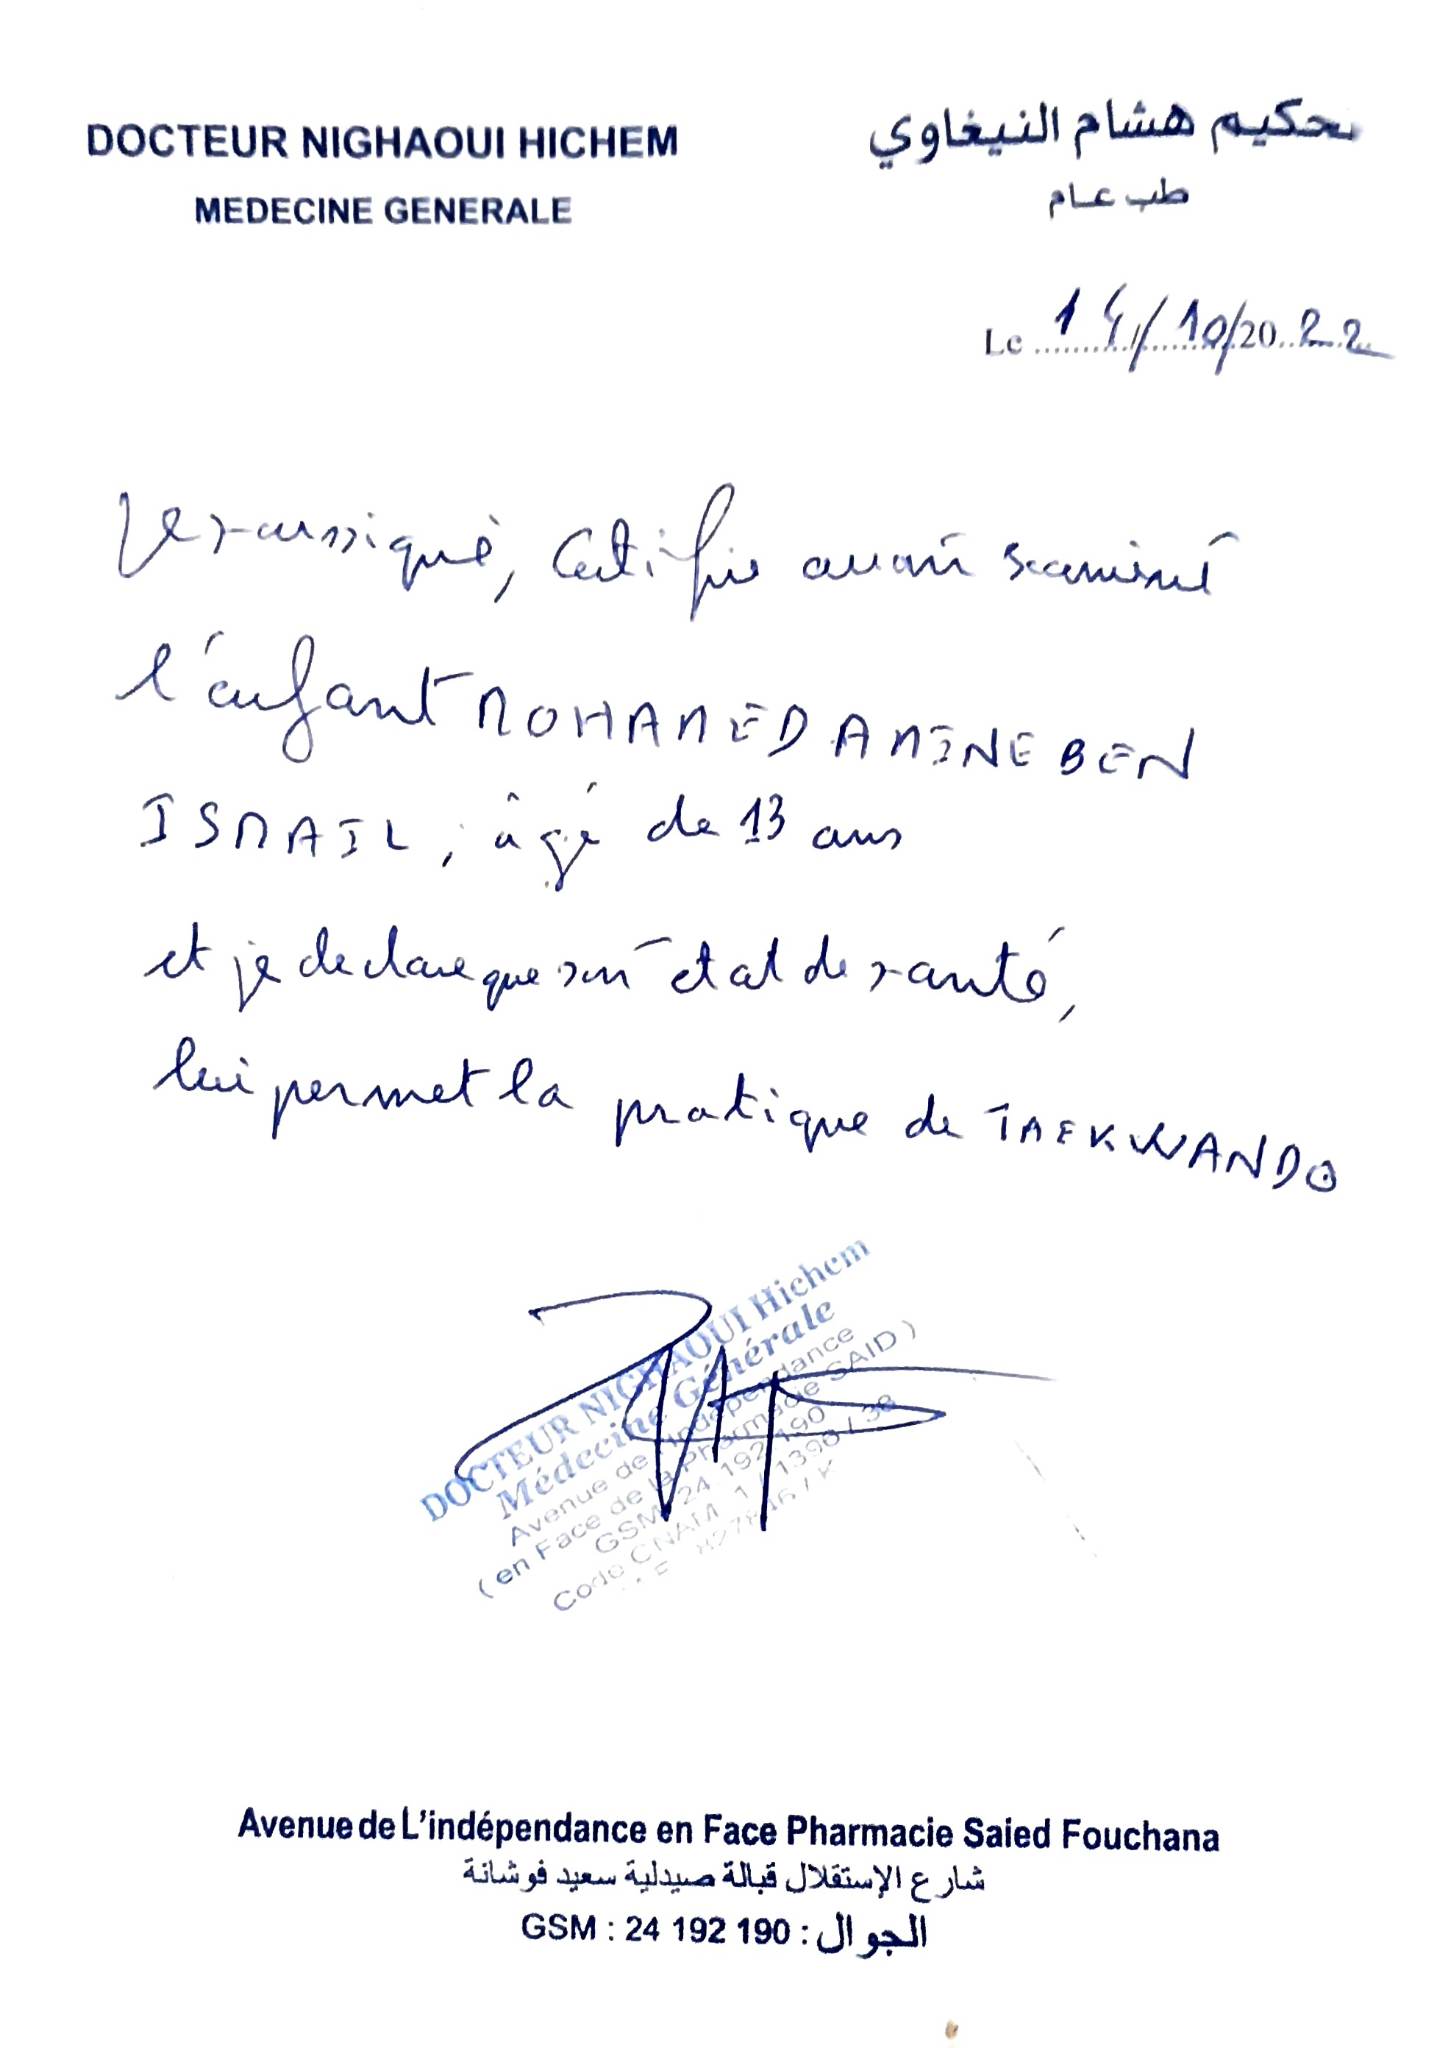 DOCTEUR NIGHAOUI HICHEM
MEDECINE GENERALE
حكيم هشام النيغاوي
طب عام
Le 14/10/2022
Le soussigné, certifie avoir examiné
l'enfant MOHAMED AMINE BEN
ISMAIL, âgé de 13 ans
et je declare que son état de santé,
lui permet la pratique de TAEKWANDO
DOCTEUR NIGHAOUI Hichem
Médecine Générale
Avenue de l'indépendance
( en Face de la Pharmacie SAID )
GSM : 24 192 190
Code CNAM 1 / 1398 / 38
Avenue de L'indépendance en Face Pharmacie Saied Fouchana
شارع الإستقلال قبالة صيدلية سعيد فوشانة
GSM : 24 192 190 : الجوال